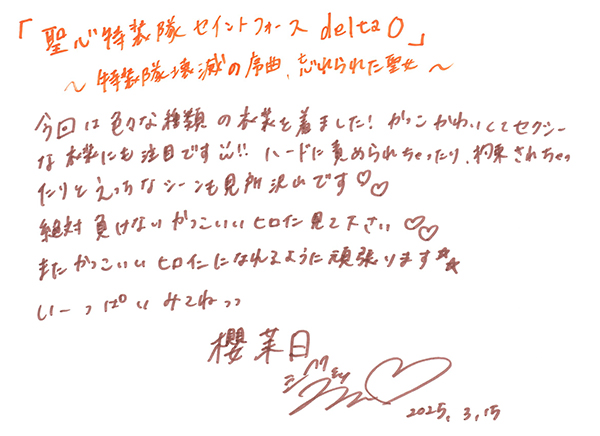 「聖心特装隊 セイントフォース delta0」
~ 特装隊壊滅の序曲、忘れられた聖女 ~
今回は色々な種類の衣装を着ました!かっこかわいくてセクシー
な衣装にも注目です!!! ハードに責められちゃったり、拘束されちゃっ
たりとえっちなシーンも見所沢山です♡♡
絶対負けないかっこいいヒロイン見て下さい♡♡
またかっこいいヒロインになれるように頑張ります★★
いーっぱいみてねっっ
櫻茉日
♡
2025.3.15